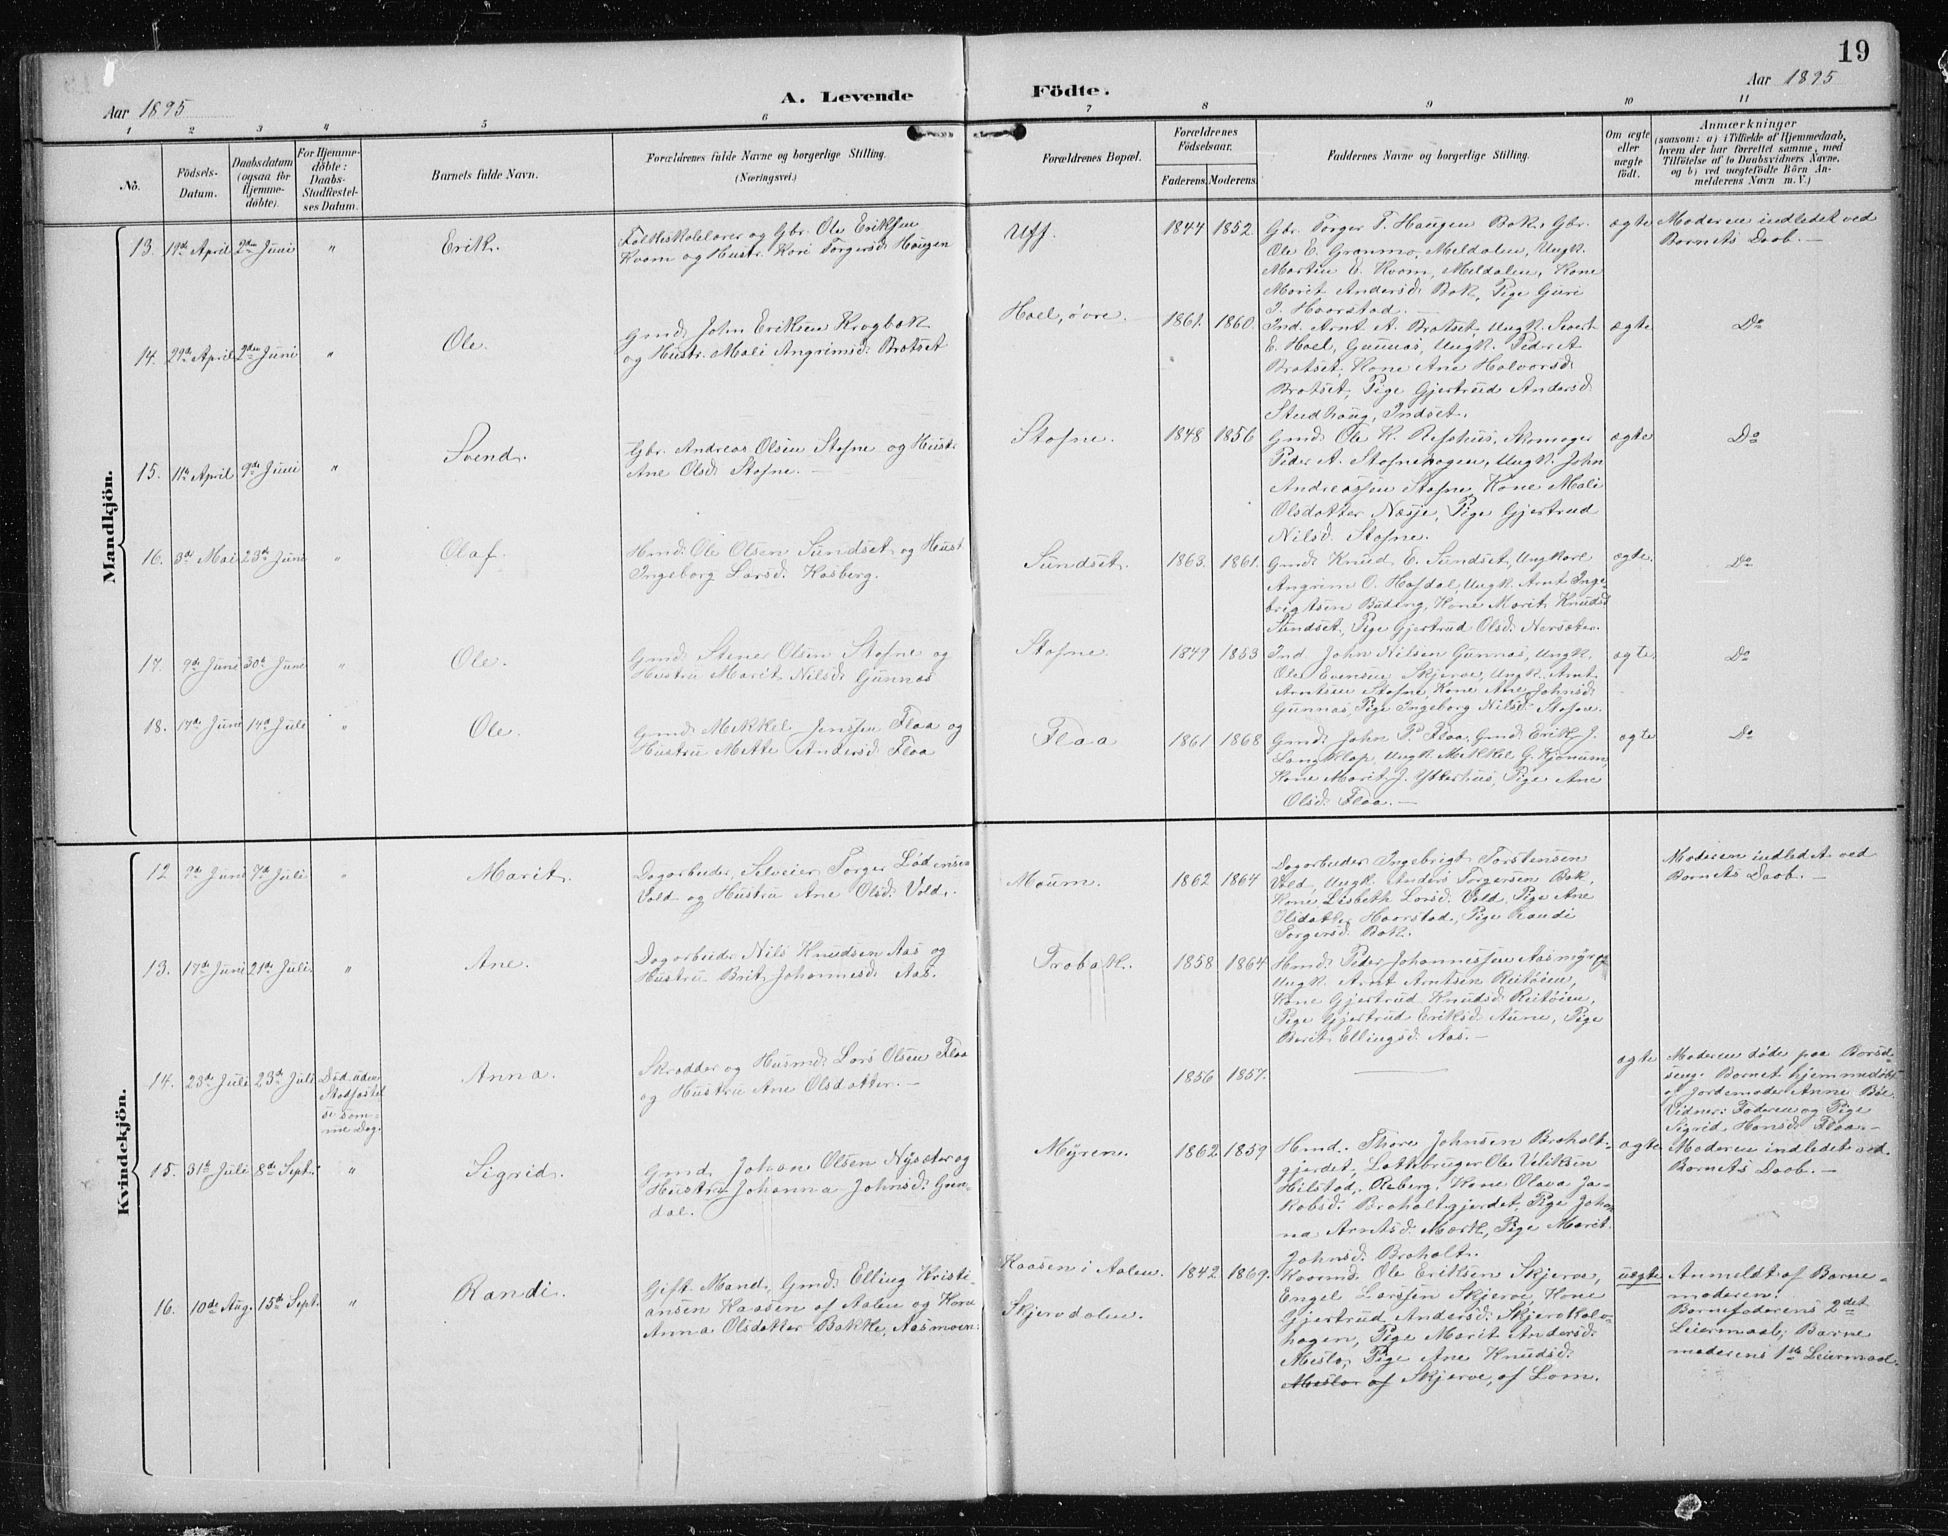 19
Aar 1895
A. Levende Fødte.
Aar 1895
1 2 3 4 5 6 7 8 9 10 11
No.
Födsels-
Datum.
Daabsdatum
(ogsaa for
Hjemme-
døbte).
For Hjemme-
døbte:
Daabs-
Stadfæstel-
ses Datum.
Barnets fulde Navn.
Forældrenes fulde Navne og borgerlige Stilling.
(Næringsvei.)
Forældrenes Bopæl.
Forældrenes
Födselsaar.
Faderens. Moderens.
Faddernes Navne og borgerlige Stilling.
Om ægte
eller
uægte
født.
Anmærkninger
(saasom: a) i Tilfælde af Hjemmedaab,
hvem der har forrettet samme, med
Tilföielse af to Daabsvidners Navne,
og b) ved uægtefödte Börn An-
melderens Navn m. V.)
Mandkjön.
13. 19de April 2den Juni " Erik.
Folkeskolelærer og Gbr. Ole Eriksen
Kvam og Hustr. Kari Torgersd. Haugen
Uff. 1844 1852.
Gbr. Torger T. Haugen Bak, Gbr.
Ole E. Granmo, Meldalen, Ungk.
Martin E. Kvam, Meldalen, Kone
Marit Andersd. Bak, Pige Guri
I. Haarstad. —
ægte
Moderen indledet ved
Barnets Daab. —
14. 29de April 2den Juni " Ole.
Gmd. John Eriksen Krogbak
og Hustr. Mali Angrimsd. Bratset
Hoel, øvre. 1861. 1860.
Ind. Arnt A. Bratset, Ungk. Sivert
E. Hoel, Gunnas, Ungk. Peder A
Bratset, Kone Ane Halvorsd.
Bratset, Pige Gjertrud Andersd.
Studhaug, Indset.
ægte Do
15. 11te April 9de Juni " Svend.
Gbr. Andreas Olsen Stafne og Hustr.
Ane Olsd. Stafne. —
Stafne. 1848 1856
Gmd. Ole K. Refshus,
Peder A. Stafnehagen, Ungk. John
Andreassen Stafne, Kone Mali
Olsdatter Næsje, Pige Gjertrud
Nilsd. Stafne.
ægte Do
16. 3die Mai 23de Juni " Olaf.
Hmd. Ole Olsen Sundset og Hust.
Ingeborg Larsd. Kasberg.
Sundset. 1863. 1861.
Gmd. Knud E. Sundset, Ungkarl
Angrim O. Hafdal, Ungk. Arnt Inge-
brigtsen Buding, Kone Marit Knudsd.
Sundset, Pige Gjertrud Olsd. Nersæter.
ægte. Do
17. 9de Juni 30te Juni " Ole.
Gmd. Stener Olsen Stafne og
Hustru Marit Nilsd. Gunnas
Stafne. 1849 1853
Ind. John Nilsen Gunnas, Ungk.
Ole Evensen Skjerve, Ungk. Arnt
Arntsen Stafne, Kone Ane Johnsd.
Gunnas, Pige Ingeborg Nilsd. Stafne.
ægte. Do
18. 17de Juni 14de Juli " Ole.
Gmd. Mikkel Jenssen Flaa og
Hustru Mette Andersd. Flaa
Flaa 1861 1868
Gmd. John P. Flaa, Gmd. Erik J.
Langklop, Ungk. Mikkel G. Kjønum,
Kone Marit J. Ytterhus, Pige Ane
Olsd. Flaa. —
ægte Do
Kvindekjön.
12 9de Juni 7de Juli " Marit.
Dagarbeider, Selveier Torger Lødensen
Vold og Hustru Ane Olsd. Vold.
Moum. 1862 1864
Dagarbeider Ingebrigt Torstensen
Vold, Ungk. Anders Torgersen Bak,
Kone Lisbeth Larsd. Vold, Pige Ane
Olsdatter Haarstad, Pige Randi
Torgersd. Bak.
Moderen indledet ved
Barnets Daab. —
13. 17de Juni 21de Juli. " Ane.
Dagarbeider Nils Knudsen Aas og
Hustru Brit Johannesd. Aas.
Trobak. 1858 1864
Hmd. Peder Johannessen Aasmyren
Ungk. Arnt Arntsen Reitøien,
Kone Gjertrud Knudsd. Reitøien,
Pige Gjertrud Eriksd. Aune, Pige
Berit Ellingsd. Aas. —
14. 23de Juli 23de Juli Død uden
Stadfæstel-
se sam-
me Dag.
Anna.
Skrædder og Husmd. Lars Olsen Flaa
og Hustru Ane Olsdatter. —
1856 1857.
ægte
Moderen døde paa Barsel-
seng. Barnet hjemmedøbt
af Jordemoder Anne Bøe.
Vidner: Faderen og Pige
Sigrid Hansd. Flaa. —
15. 31te Juli 8de Sept. " Sigrid.
Gmd. Johan Olsen Nysæter og
Hustru Johanna Johnsd. Gun-
dal.
Myren. 1862 1859
Hmd. Thore Johnsen Braholt-
gjerdet, Lottebruger Ole Veliksen
Hilstad, Reberg, Kone Olava Ja-
kobsd. Braholtgjerdet, Pige Johan-
na Arntsd. Mærk, Pige Marit
Johnsd. Braholt.
ægte
Moderen indledet ved
Barnets Daab. —
16. 10de Aug. 15de Sept. " Randi.
Gift Mand, Gmd. Elling Kristi-
ansen Kaasen af Aalen og Kone
Anna Olsdatter Bakke, Aasmoen.
Kaasen i Aalen.
Skjervdalen.
1842 1869.
Kaarmd. Ole Eriksen Skjerve,
Engel Larssen Skjerve, Kone
Gjertrud Andersd. Skjervkale-
hagen, Pige Marit Andersd.
Meslo, Pige Ane Knudsd.
Meslo af Skjerve, af Lom.
uægte
Anmeldt af Barne-
moderen.
Barnefaderens 2det
Leiermaal; Barne-
moderens 1ste Leiermaal.